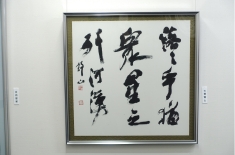 落々乎猶
衆星之
列河漢